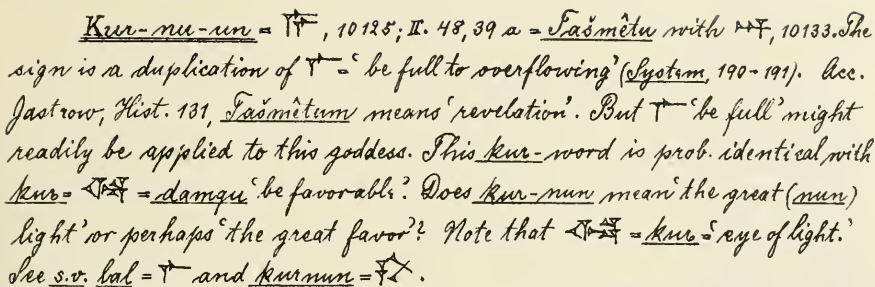 Kur-nu-un = , 10125; II. 48, 39 a = Tašmêtu with 𒀭, 10133. The
sign is a duplication of = 'be full to overflowing' (System, 190-191). Acc.
Jastrow, Hist. 131, Tašmêtum means 'revelation'. But 'be full' might
readily be applied to this goddess. This kur-word is prob. identical with
kur = = damqu 'be favorable'. Does kur-nun mean 'the great (nun)
light' or perhaps 'the great favor'? Note that = kur = 'eye of light.'
See s.v. bal = and kurnun = .